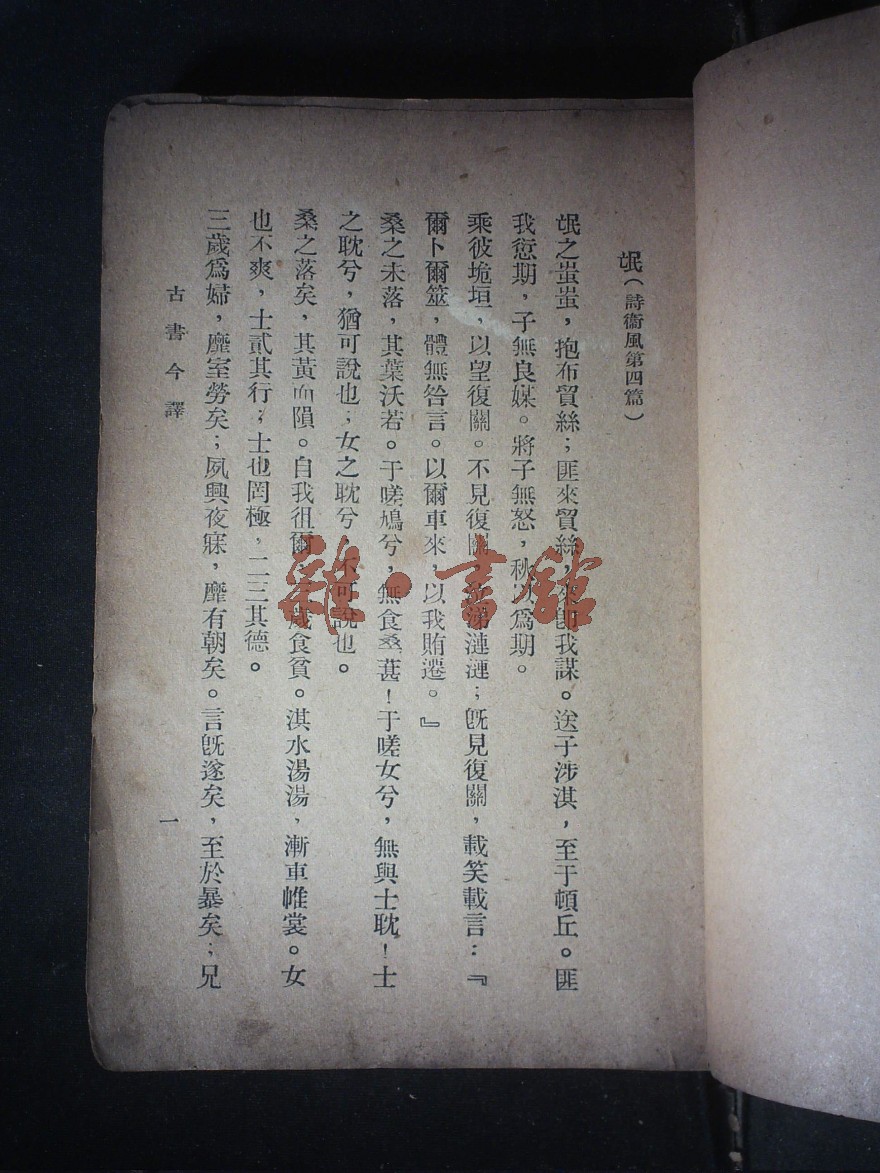 氓（詩衞風第四篇）
氓之蚩蚩，抱布貿絲；匪來貿絲，來卽我謀。送子涉淇，至于頓丘。匪
我愆期，子無良媒。將子無怒，秋以爲期。
乘彼垝垣，以望復關。不見復關，泣涕漣漣；旣見復關，載笑載言：『
爾卜爾筮，體無咎言。以爾車來，以我賄遷。』
桑之未落，其葉沃若。于嗟鳩兮，無食桑葚！于嗟女兮，無與士耽！士
之耽兮，猶可說也；女之耽兮 不可說也。
桑之落矣，其黃而隕。自我徂爾，三歲食貧。淇水湯湯，漸車帷裳。女
也不爽，士貳其行；士也罔極，二三其德。
三歲爲婦，靡室勞矣；夙興夜寐，靡有朝矣。言旣遂矣，至於暴矣；兄
古書今譯
一
雜·書館